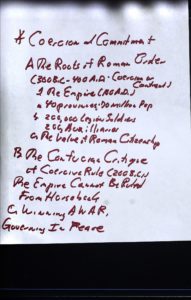 * Coercion and Commitment
A The Roots of Roman Order
(300 B.C - 400 A.D. - Coercion or
Contract)
1 The Empire (100 A.D.)
a 40 provinces - 50 million Pop
b 200,000 Legion Soldiers
200, Auxilliaries
c. The Value of Roman Citizenship
B The Confucian Critique
of Coercive Rule (200 B.C.)
The Empire Cannot Be Ruled
From Horseback
C, Winning A WAR,
Governing In Peace